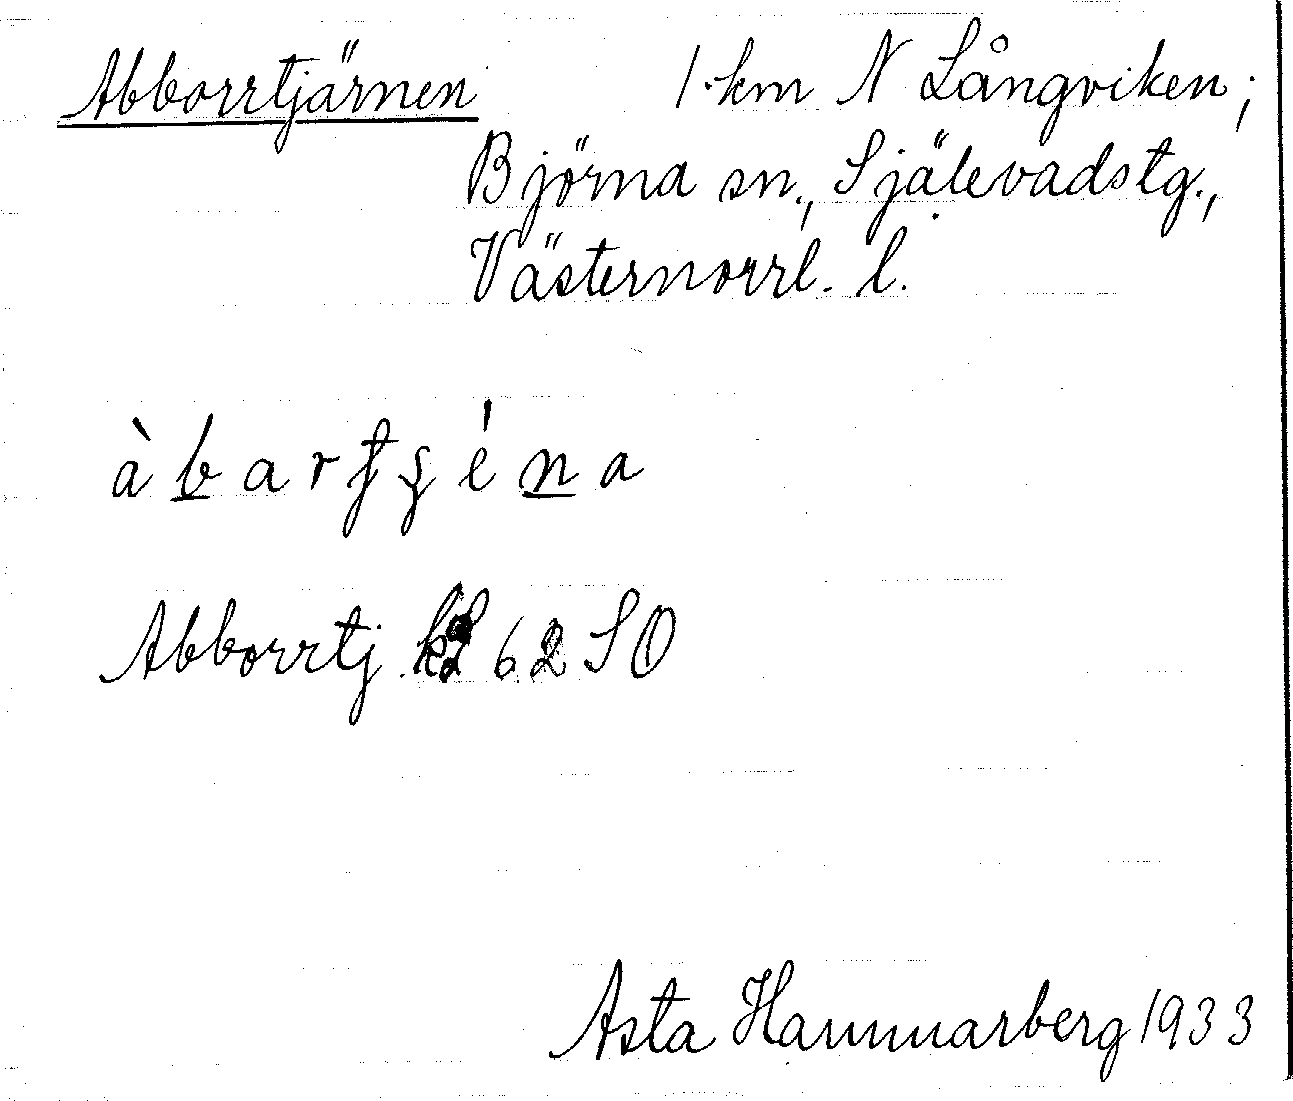 Abborrtjärnen 1 km N Långviken;
Björna sn., Själevadstg.,
Västernorrl. l.
àbartʃéna
Abborrtj 62 SO
Asta Hammarberg 1933